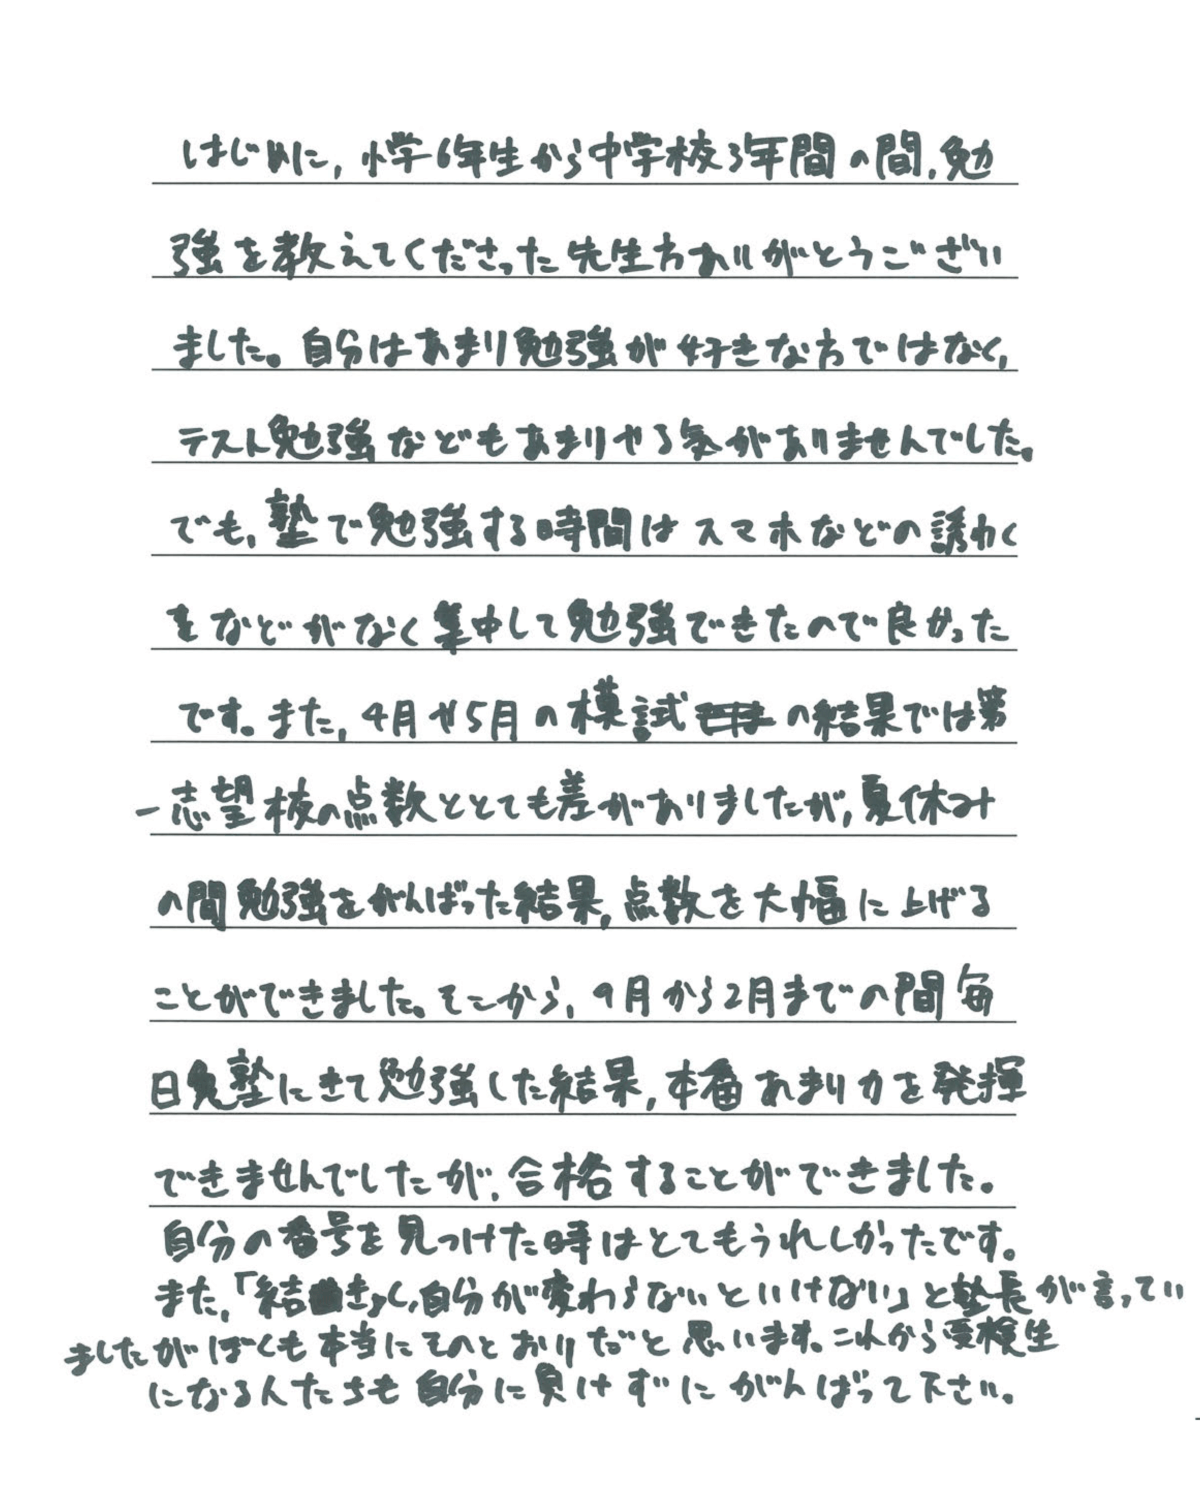 はじめに,小学6年生から中学校3年間の間,勉
強を教えてくださった先生方ありがとうござい
ました。自分はあまり勉強が好きな方ではなく,
テスト勉強などもあまりやる気がありませんでした。
でも,塾で勉強する時間はスマホなどの誘わく
をなどがなく集中して勉強できたので良かった
です。また,4月や5月の模試の結果では第
一志望校の点数ととても差がありましたが,夏休み
の間勉強をがんばった結果,点数を大幅に上げる
ことができました。そこから,9月から2月までの間毎
日塾にきて勉強した結果,本番あまり力を発揮
できませんでしたが,合格することができました。
自分の番号を見つけた時はとてもうれしかったです。
また,「結きょく,自分が変わらないといけない」と塾長が言ってい
ましたがぼくも本当にそのとおりだと思います。これから受検生
になる人たちも自分に負けずにがんばって下さい。